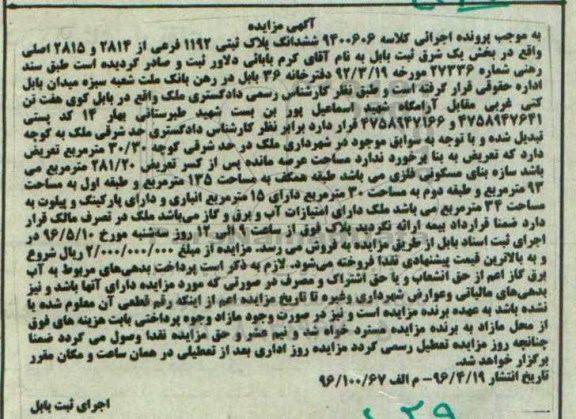 آگهی مزایده
به موجب پرونده اجرائی کلاسه ۹۴۰۰۶۰۶ ششدانگ پلاک ثبتی ۱۱۹۲ فرعی از ۲۸۱۴ و ۲۸۱۵ اصلی
واقع در بخش یک شرق ثبت بابل به نام آقای کرم بابائی دلاور ثبت و صادر گردیده است طبق سند
رهنی شماره ۲۷۳۳۶ مورخه ۹۲/۳/۱۹ دفترخانه ۳۶ بابل در رهن بانک ملت شعبه سبزه میدان بابل
اداره حقوقی قرار گرفته است و طبق نظر کارشناس رسمی دادگستری ملک واقع در بابل کوی هفت تن
کتی غربی مقابل آرامگاه شهید اسماعیل پور بن بست شهید طبرستانی بهار ۱۴ کد پستی
۴۷۵۸۹۴۷۶۴۱ و ۴۷۵۸۹۴۷۱۶۶ قرار دارد برابر نظر کارشناس دادگستری حد شرقی ملک به کوچه
تبدیل شده و با توجه به سوابق موجود در شهرداری ملک در حد شرقی کوچه ۳۰/۳۰ مترمربع تعریض
دارد که تعریض به بنا برخورد ندارد مساحت عرصه مانده پس از کسر تعریض ۲۸۱/۲۰ مترمربع می
باشد سازه بنای مسکونی فلزی می باشد طبقه همکف به مساحت ۱۳۵ مترمربع و طبقه اول به مساحت
۹۳ مترمربع و طبقه دوم به مساحت ۳۰ مترمربع دارای ۱۵ مترمربع انباری و دارای پارکینگ و پیلوت به
مساحت ۳۴ مترمربع می باشد ملک دارای امتیازات آب و برق و گاز می‌باشد ملک در تصرف مالک قرار
دارد ضمنا قرارداد بیمه ارائه نگردید پلاک فوق از ساعت ۹ الی ۱۲ روز سه‌شنبه مورخ ۹۶/۵/۱۰ در
اجرای ثبت اسناد بابل از طریق مزایده به فروش می رسد. مزایده از مبلغ ۲/۰۰۰/۰۰۰/۰۰۰ ریال شروع
و به بالاترین قیمت پیشنهادی نقدا فروخته می‌شود. لازم به ذکر است پرداخت بدهی‌های مربوط به آب
برق گاز اعم از حق انشعاب و یا حق اشتراک و مصرف در صورتی که مورد مزایده دارای آنها باشد و نیز
بدهی‌های مالیاتی وعوارض شهرداری وغیره تا تاریخ مزایده اعم از اینکه رقم قطعی آن معلوم شده یا
نشده باشد به عهده برنده مزایده است و نیز در صورت وجود مازاد وجوه پرداختی بابت هزینه های فوق
از محل مازاد به برنده مزایده مسترد خواه شد و نیم عشر و حق مزایده نقدا وصول می گردد ضمنا
چنانچه روز مزایده تعطیل رسمی گردد مزایده روز اداری بعد از تعطیلی در همان ساعت و مکان مقرر
برگزار خواهد شد.
تاریخ انتشار ۹۶/۴/۱۹- م الف ۹۶/۱۰۰/۶۷
اجرای ثبت بابل